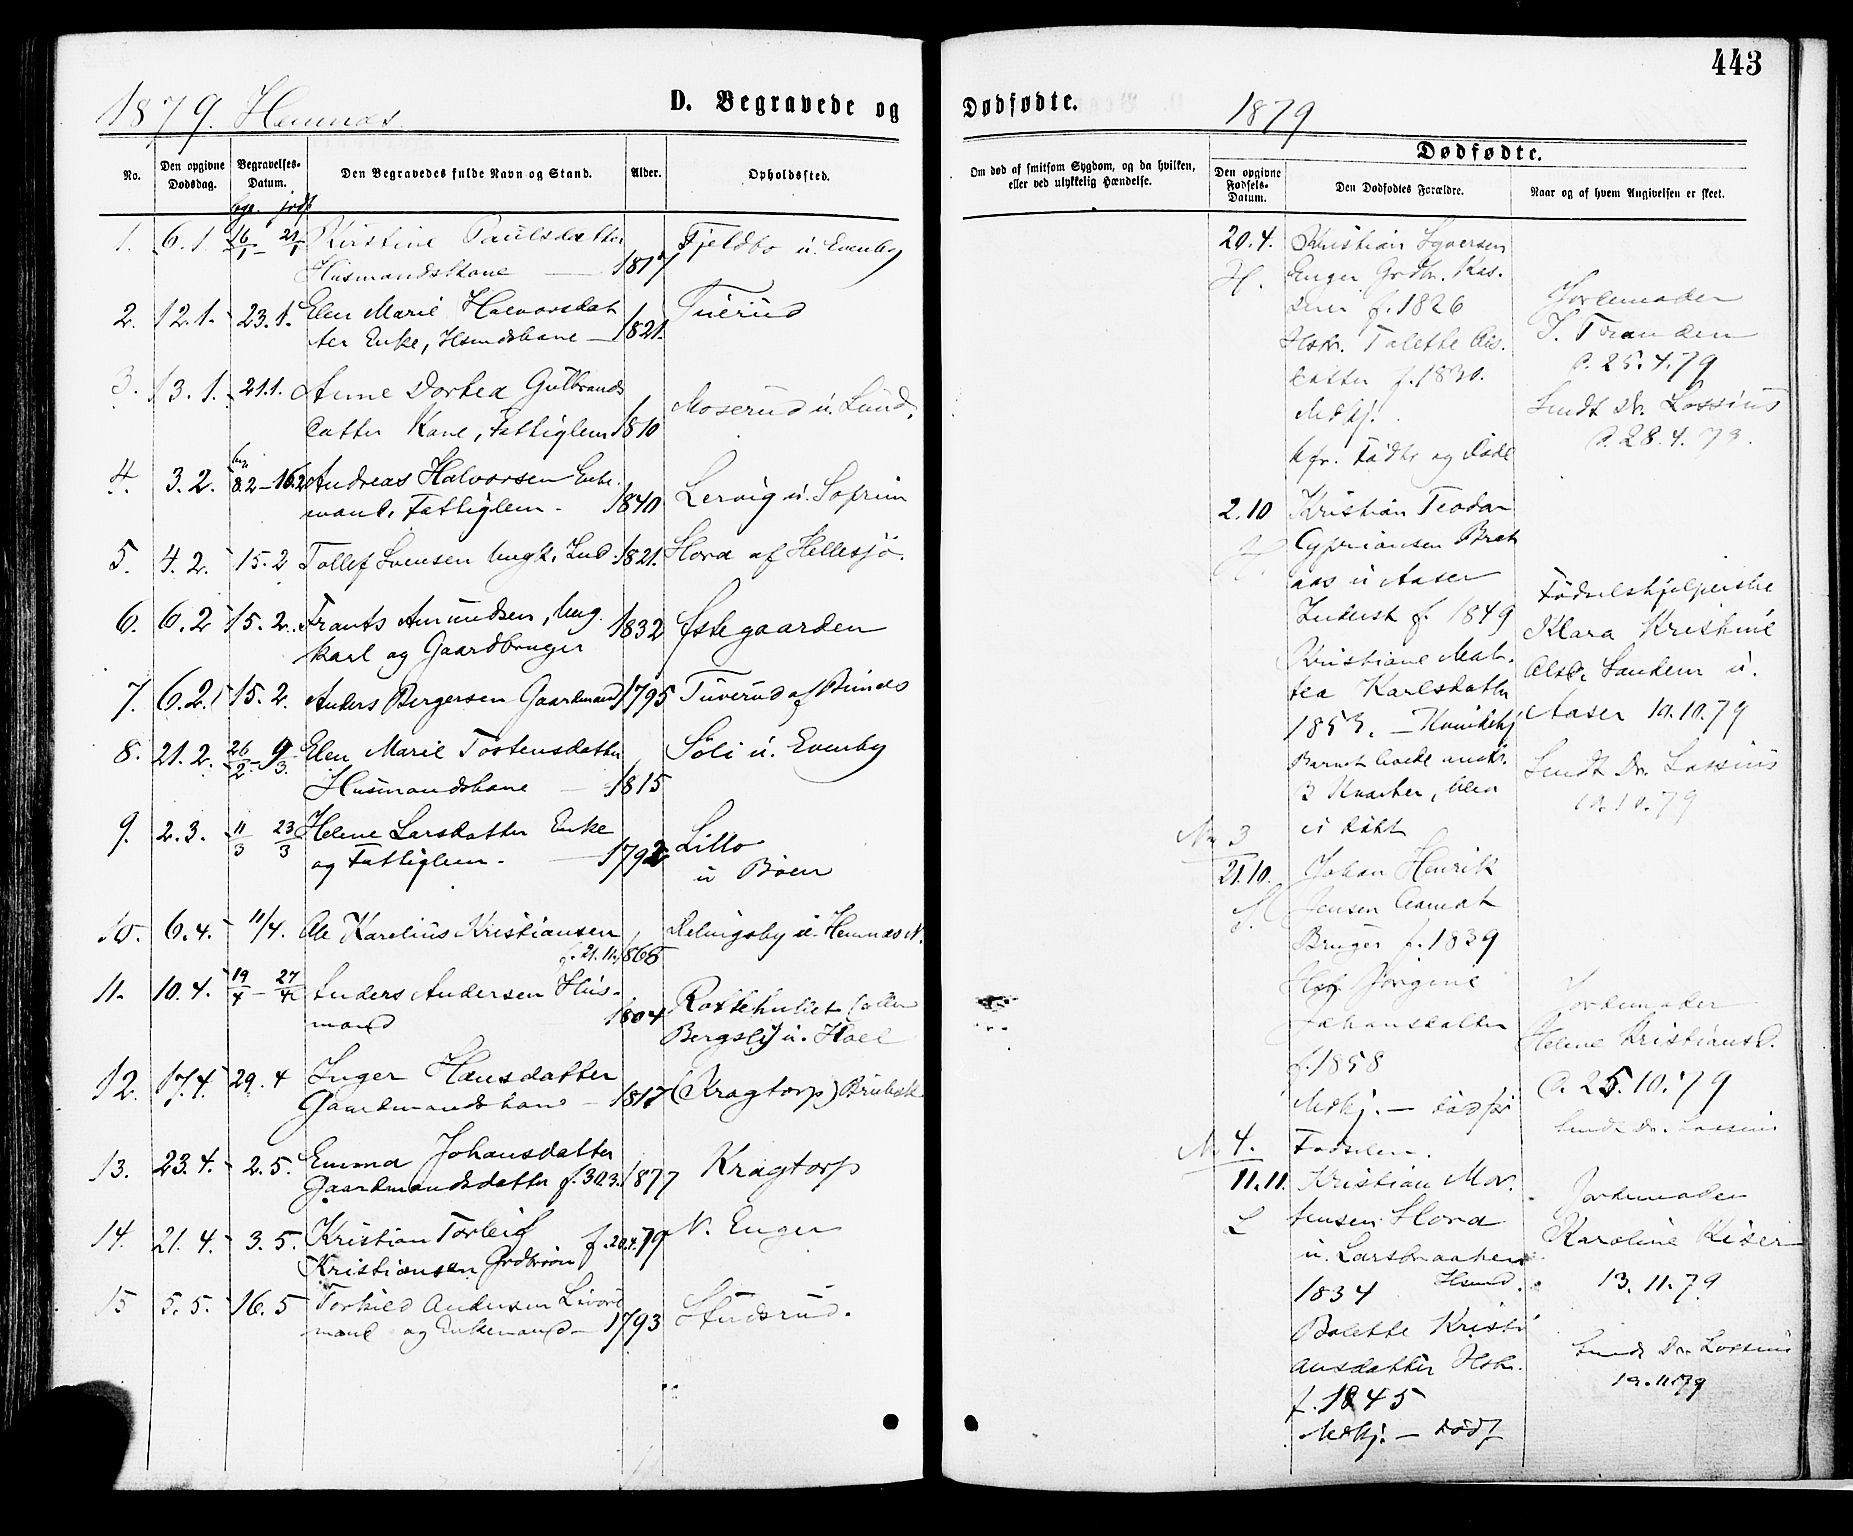 443
1879. Hemnæs
D. Begravede og
No.
Den opgivne Dødsdag.
Begravelses-Datum.
Den Begravedes fulde Navn og Stand.
Alder.
Opholdssted.
bgr. jordf
1. 6.1. 16/1 – 21/1 Kirstine Paulsdatter Fjeldbo u. Evenby
Husmandskone — 1817
2. 12.1. 23.1. Elen Marie Halvorsdat Tuerud
ter Enke, Hsmdskone — 1821.
3. 13.1. 21.1. Anne Dorthea Gulbrands Moserud u. Lund.
datter Kone, Fattiglem 1810
4. 3.2. 8.2 – 16.2 Andreas Halvorsen Enke
mand, Fattiglem - 1840 Lervig u. Soprim
5. 4.2. 15.2 Tollef Svensen Ungk. Ind. 1821. Hora af Hellesjø.
6. 6.2 15.2. Frants Amundsen, Ung 1832 Østegaarden
karl og Gaardbruger
7. 6.2. 15.2. Anders Bergersen Gaardmand 1795 Tuverud af Bunes
8. 21.2. 26/2 – 9/3. Elen Marie Tostensdatter Søli u. Evenby
Husmandskone — 1815
9. 2.3. 11/3 23/3 Helene Larsdatter Enke Lillo
og Fattiglem. — 1792 u Böen
10. 6.4. 11/4. Ole Karelius Kristiansen u. Hemnæs N.
f. 21.11. 1868
11. 10.4. 19/4 – 27/4 Anders Andersen Hus-
mand 1804 (eller
Bergsli) u. Hoel
12. 17.4. 29.4 Inger Hansdatter
Gaardmandskone — 1817 (Kragtorp)
13. 23.4. 2.5. Emma Johansdatter Kragtorp
Gaardmandsdatter f. 30.3. 1877
14. 21.4. 3.5. Kristian Torleif f. 20.4. 79 N. Enger
Kristiansen
15 5.5. 16.5 Torkild Andersen
mand og Enkemand – 1793 Studsrud.
Dødfødte. 1879
Om død af smitsom Sygdom, og da hvilken,
eller ved ulykkelig Hændelse.
Dødfødte.
Den opgivne Fødsels-Datum.
Den Dødfødtes Forældre.
Naar og af hvem Angivelsen er skeet.
20.4. Kristian Syversen
H. Enger Grdbr. Kas.
f. 1826
Hskr. Talette
datter f. 1830.
Mdkj.
Jordemoder
I. Tranden
d. 25.4.79
Sendt Dr. Lossius
d. 28.4.79.
2.10 Kristian Teodor
H. Cypriansen Brat
aas u Aaser
Inderst f. 1849
Kristiane Mat-
tea Karlsdatter
1853. – Kvindekj
3 Kvarter, blev
ei døbt
Fødselshjelperske
Klara Kristine
Olsd. Sandem u.
Aaser 10.10.79
Sendt Dr. Lossius
10.10.79
No 3
21.10. Johan Henrik
Jensen
Bruger f. 1839
Jørgine
Johansdatter
f. 1858
Mdkj. – død før
Fødselen.
Jordemoder
Helene Kristiansd.
d. 25.10.79
Sendt Dr. Lossius
No 4.
11.11. Kristian Mor-
L tensen Hora
u. Larsbraaten
1834 Hsmd.
Bolette Kristi
ansdatter Hskr.
f. 1845
Mdkj. – dødf
Jordemoder
Karoline Kiser
13.11.79
Sendt Dr. Lossius
19.11.79